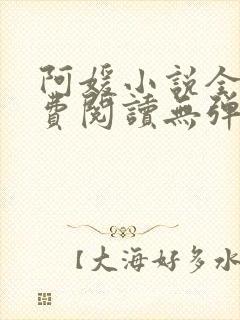 阿媛小说全
費閱讀無弹
【大海好多水